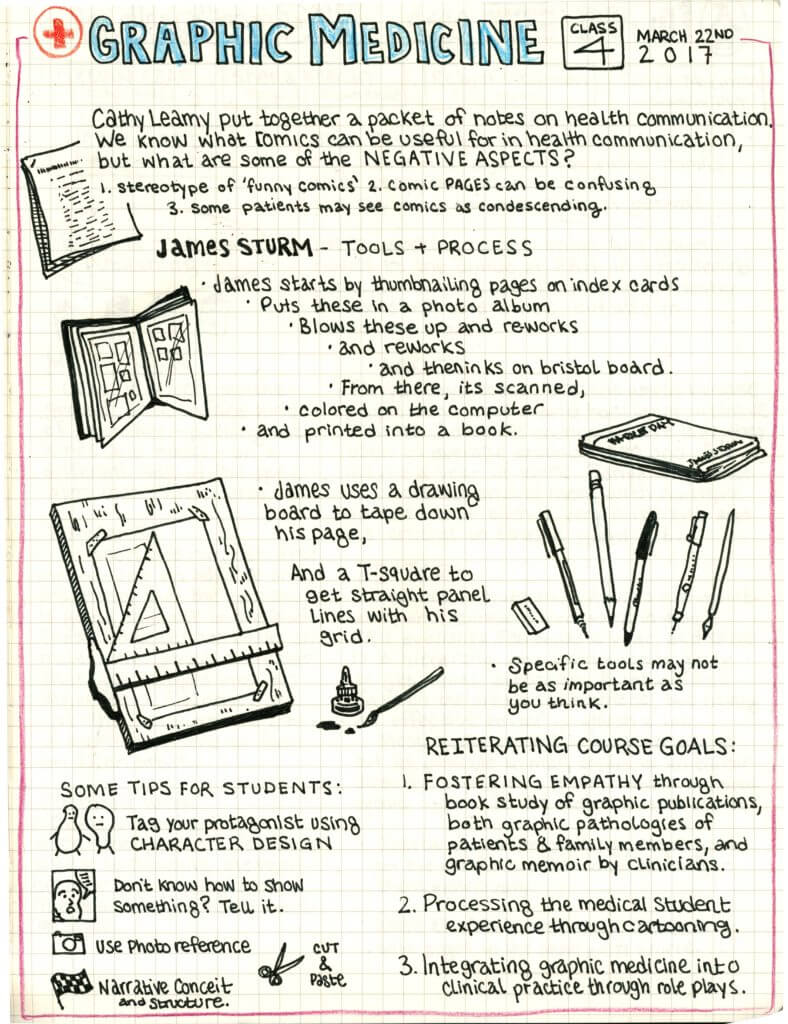 GRAPHIC MEDICINE
CLASS 4
MARCH 22ND
2017
Cathy Leamy put together a packet of notes on health communication.
We know what comics can be useful for in health communication,
but what are some of the NEGATIVE ASPECTS?
1. stereotype of 'funny comics' 2. Comic PAGES can be confusing
3. some patients may see comics as condescending.
James STURM - TOOLS + PROCESS
· James starts by thumbnailing pages on index cards
· Puts these in a photo album
· Blows these up and re-works
· and reworks
· and then inks on bristol board.
· From there, its scanned,
· colored on the computer
· and printed into a book.
· James uses a drawing
board to tape down
his page,
And a T-square to
get straight panel
Lines with his
grid.
· Specific tools may not
be as important as
you think.
SOME TIPS FOR STUDENTS:
Tag your protagonist using
CHARACTER DESIGN
Don't know how to show
something? Tell it.
use Photo reference
CUT
&
Paste
Narrative Conceit
and structure.
REITERATING COURSE GOALS:
1. FOSTERING EMPATHY through
book study of graphic publications,
both graphic pathologies of
patients & family members, and
graphic memoir by clinicians.
2. Processing the medical student
experience through cartooning.
3. Integrating graphic medicine into
clinical practice through role plays.